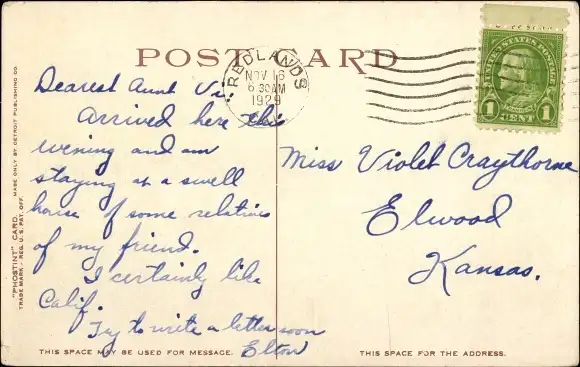 POST CARD
REDLANDS
NOV 16
6 30AM
1929
UNITED STATES POSTAGE
1 CENT 1
Dearest Aunt Vi:
Arrived here this
evening and am
staying at a swell
house of some relatives
of my friend.
I certainly like
Calif.
Try to write a letter soon
Elton
Miss Violet Craythorne
Elwood
Kansas.
"PHOSTINT" CARD. MADE ONLY BY DETROIT PUBLISHING CO.
TRADE MARK - REG. U.S. PAT. OFF.
THIS SPACE MAY BE USED FOR MESSAGE.
THIS SPACE FOR THE ADDRESS.